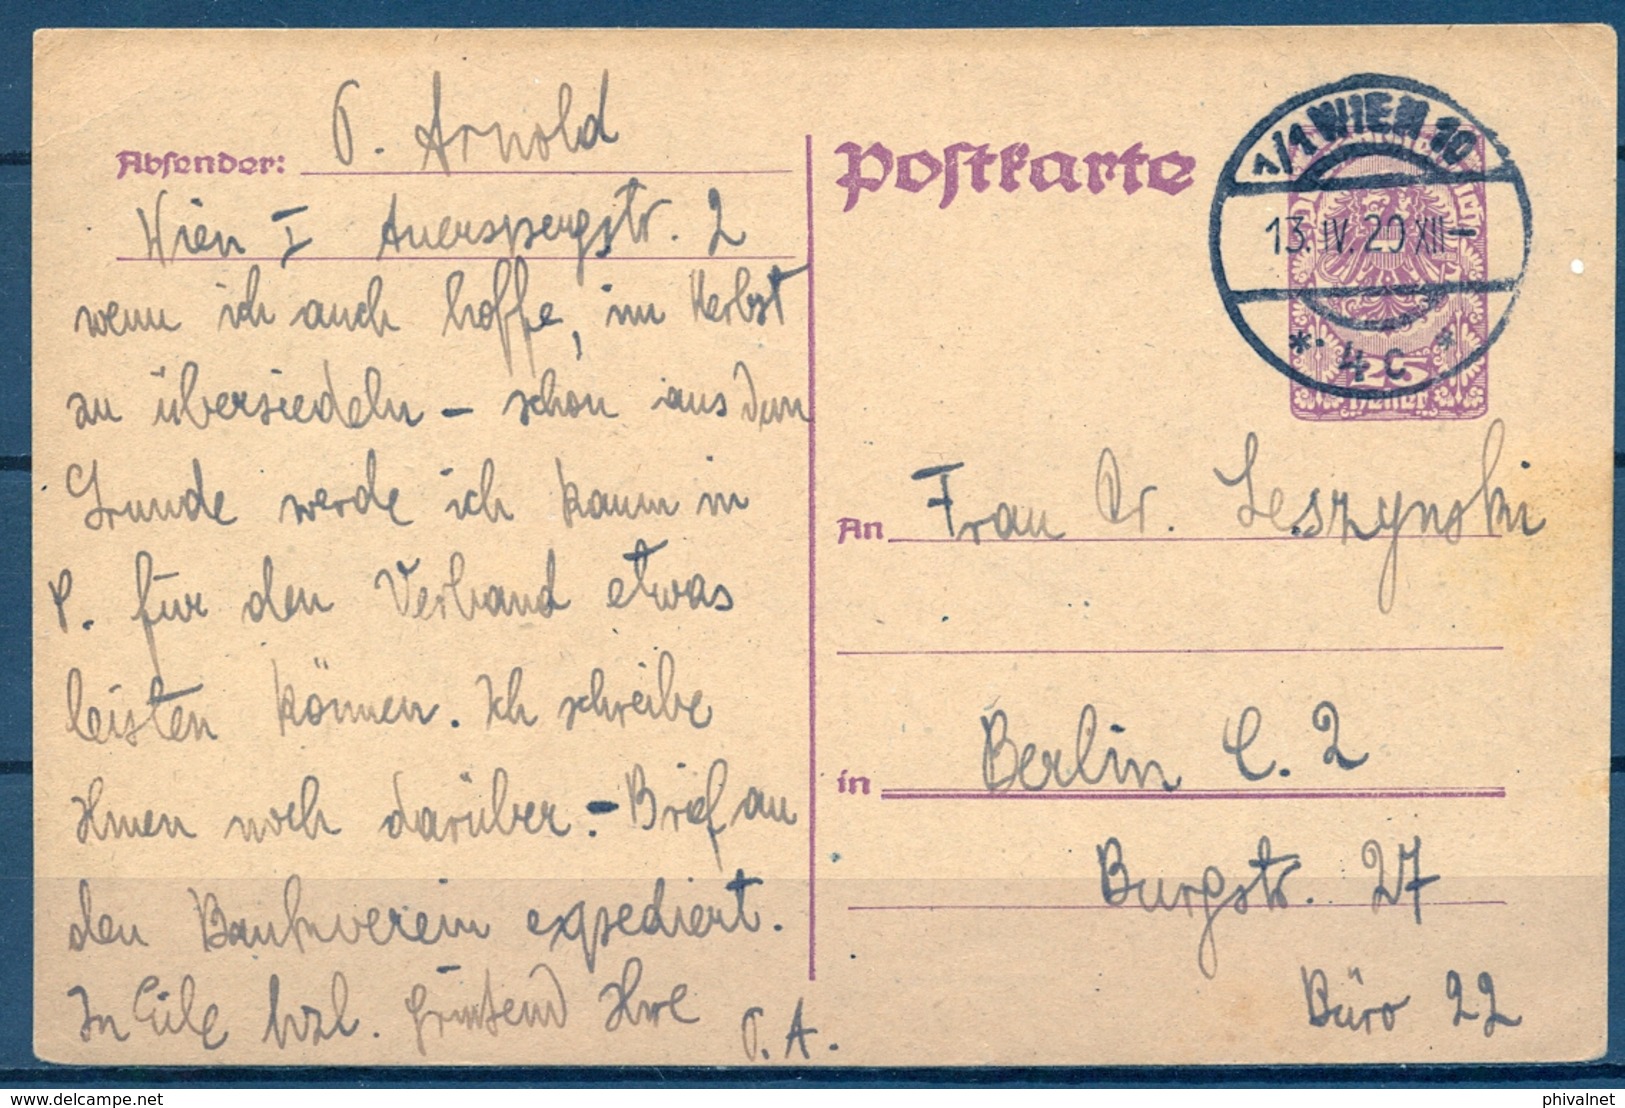 Absender: O. Arnold
Wien I Auerspergstr. 2
wenn ich auch hoffe, im Herbst
zu übersiedeln – schon aus dem
Grunde werde ich kaum in
P. für den Verband etwas
leisten können. Ich schreibe
Ihnen noch darüber. – Brief an
den Bankverein expediert.
In Eile hzl. grüßend Ihre
O. A.
Postkarte
1/1 WIEN 10
13. IV. 20 XII–
* 4c *
25
Heller
An Frau Dr. Leszynski
in Berlin C. 2
Burgstr. 27
Büro 22
delcampe.net
phivalnet